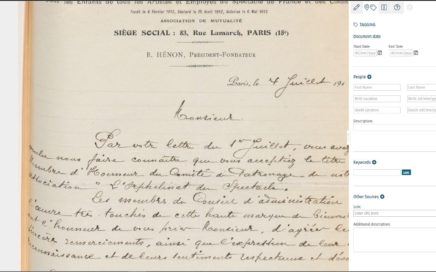 les Enfants de tous les Artistes et Employés du Spectacle de France et des Colonies
ASSOCIATION DE MUTUALITÉ
SIÈGE SOCIAL : 83, Rue Lamarck, PARIS (18e)
E. HÉNON, PRÉSIDENT-FONDATEUR
Paris, le 4 Juillet 191
Monsieur
Par votre lettre du 1er Juillet, vous avez
voulu nous faire connaître que vous acceptiez le titre
Membre d'Honneur du Comité de Patronage de notre
association "L'Orphelinat du Spectacle.
Les membres du Conseil d'administration
d'œuvre très touchés de cette haute marque de
l'honneur de vous prier Monsieur, d'agréer
sincère remerciements, ainsi que l'expression de leur
reconnaissance et de leurs sentiments respectueux et
TAGGING
Document date
Start Date
End Date
People
First Name
Last Name
Birth Location
Death Location
Description
Keywords
Other Sources
Link
Additional description